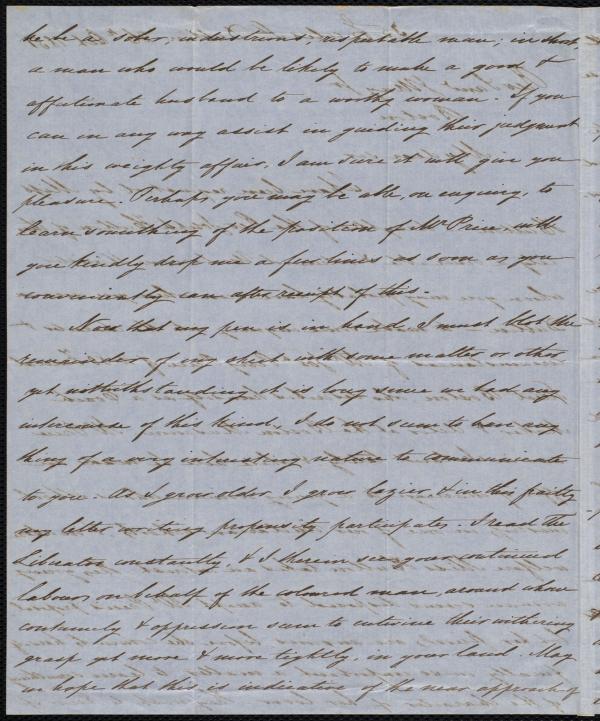 he be a sober, industrious, respectable man; in short,
a man who would be likely to make a good &
affectionate husband to a worthy woman. If you
can in any way assist in guiding their judgment
in this weighty affair, I am sure it will give you
pleasure. Perhaps, you may be able, on enquiry, to
learn something of the position of Mr Price, will
you kindly drop me a few lines as soon as you
conveniently can after receipt of this.
Now that my pen is in hand, I must blot the
remainder of my sheet with some matter or other
yet, notwithstanding it is long since we had any
intercourse of this kind, I do not seem to have any
thing of a very interesting nature to communicate
to you. As I grow older, I grow lazier, & in this frailty
my letter writing propensity participates. I read The
Liberator constantly, & I therein see your continued
labours on behalf of the coloured man, around whom
contumely & oppression seem to entwine their withering
grasp yet more & more tightly, in your land. May
we hope that this is indicative of the near approach of